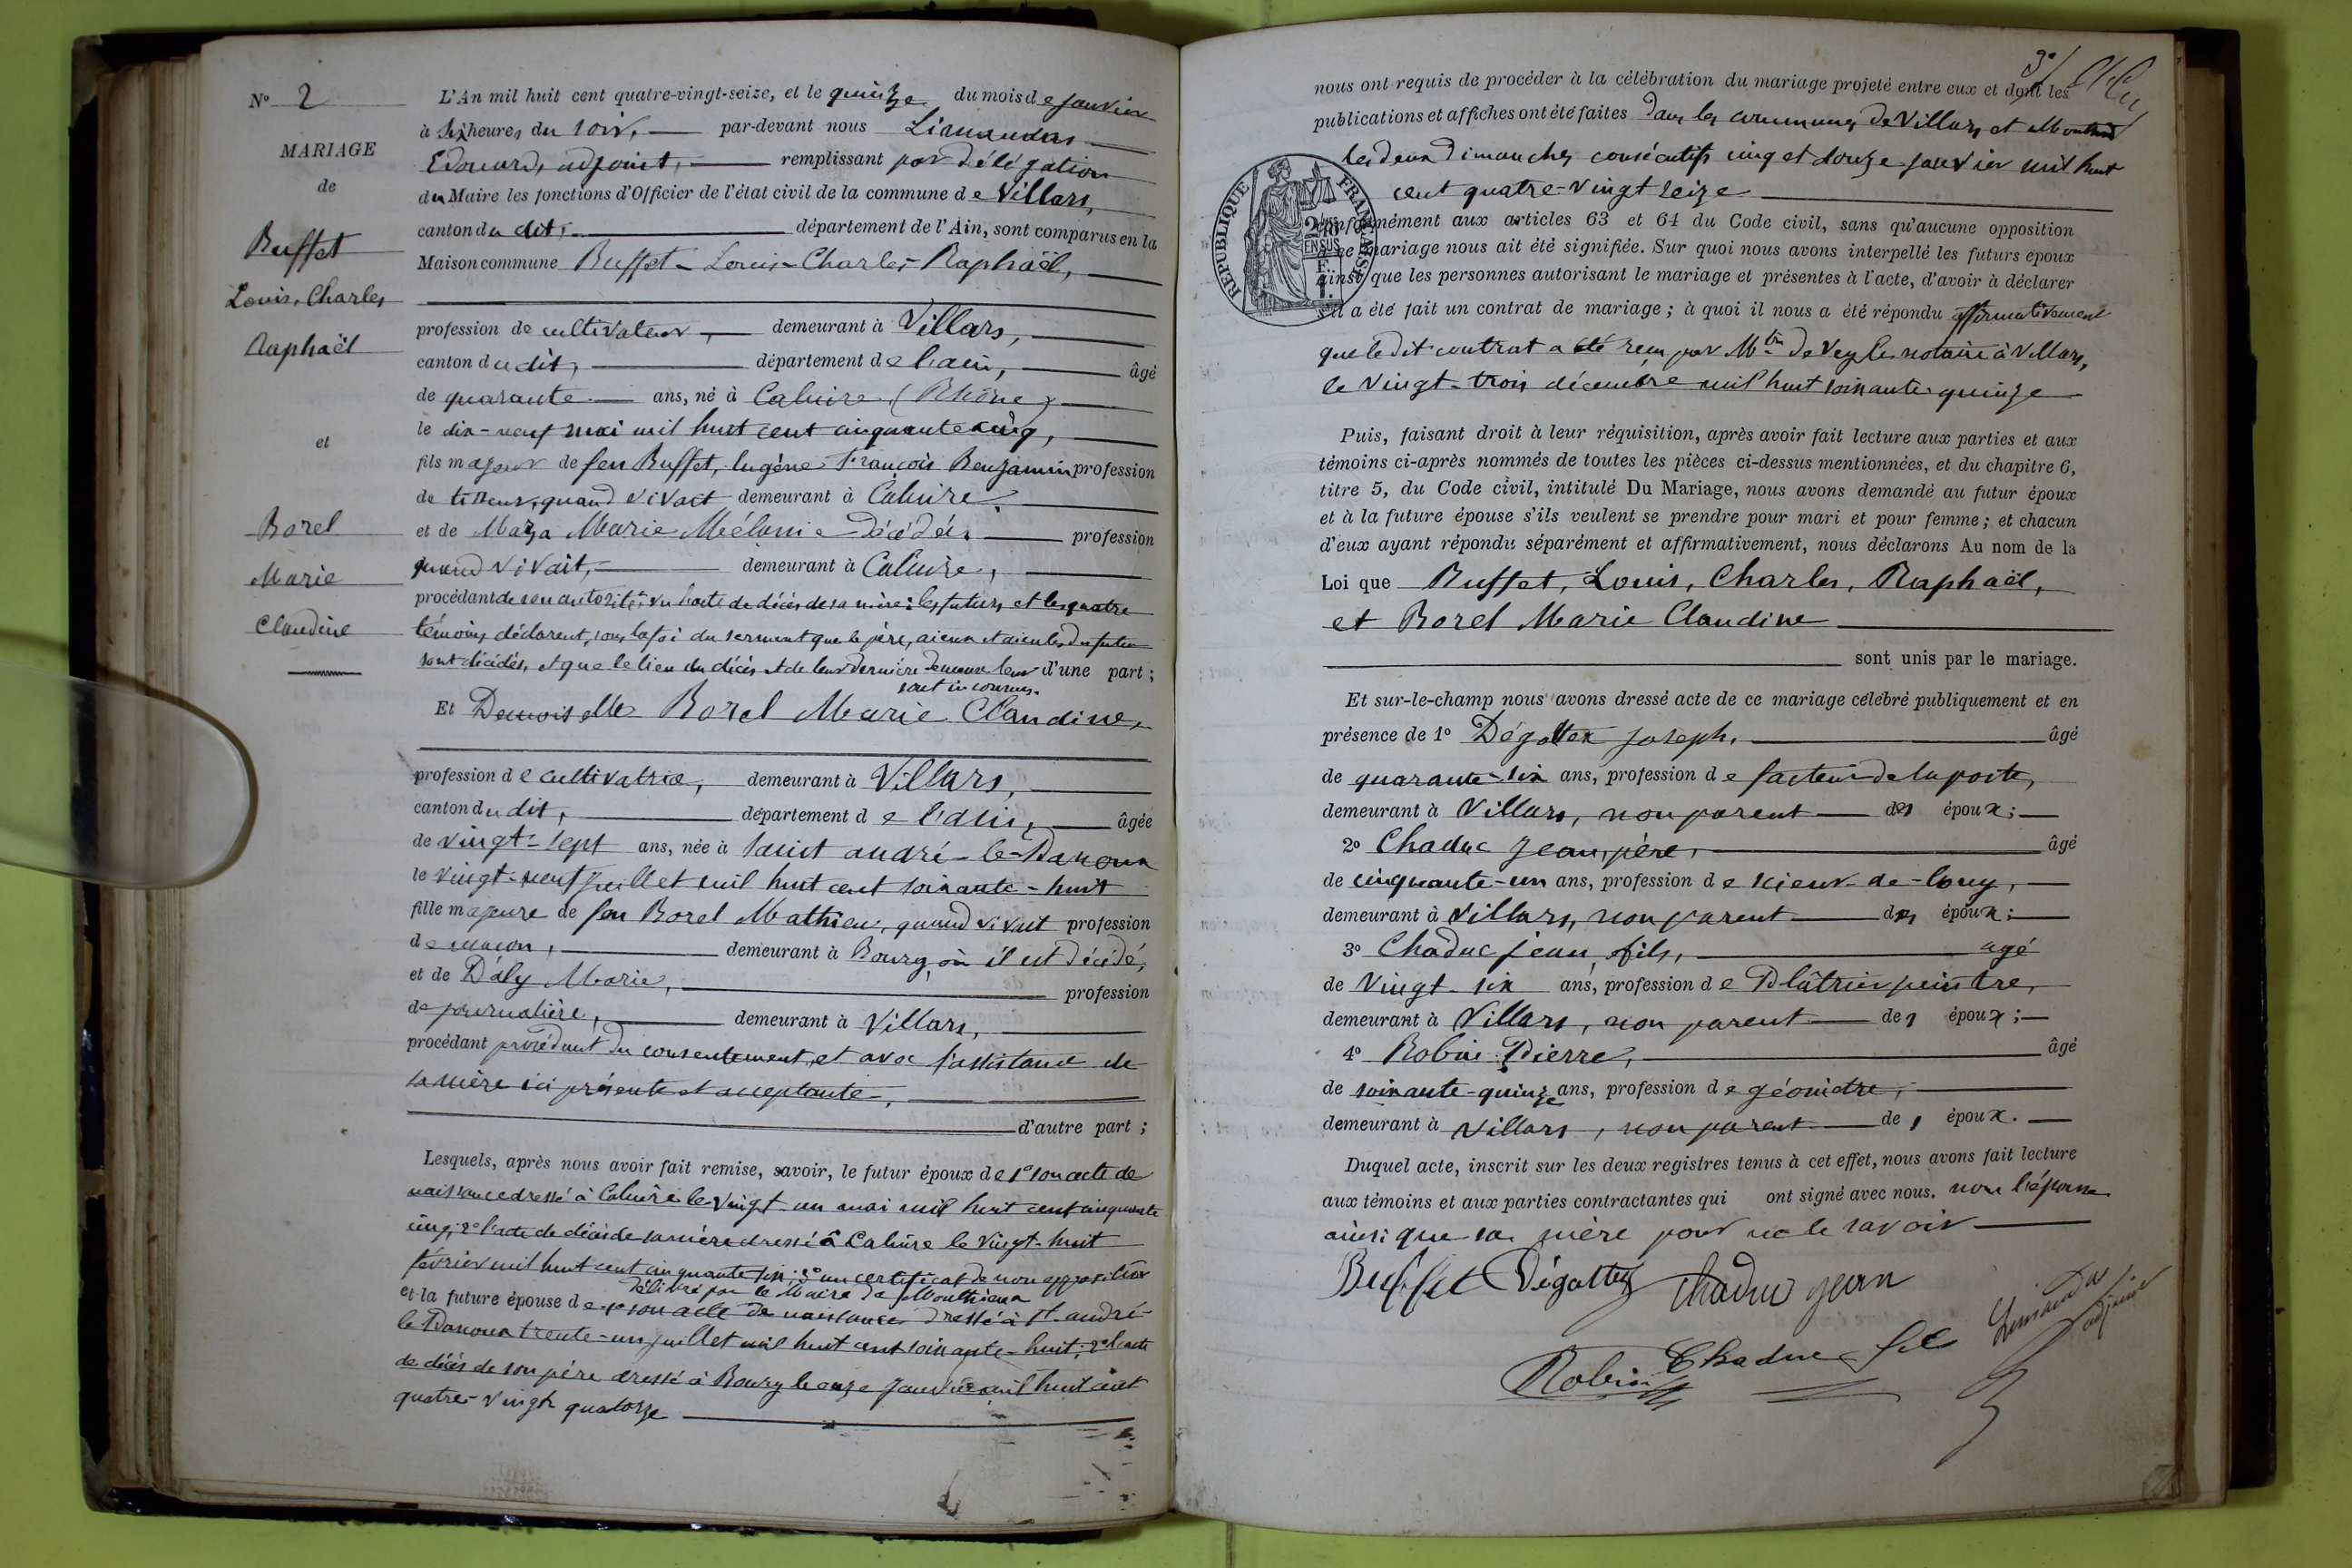 N° 2
MARIAGE
de
Buffet
Louis, Charles
Raphaël
et
Borel
Marie
Claudine
L'An mil huit cent quatre-vingt-seize, et le quinze du mois de janvier
à six heures du soir, par-devant nous
Edouard, adjoint, remplissant par délégation
du Maire les fonctions d'Officier de l'état civil de la commune de Villars,
canton du dit, département de l'Ain, sont comparus en la
Maison commune Buffet - Louis - Charles - Raphaël,
profession de cultivateur, demeurant à Villars,
canton du dit, département de l'ain, âgé
de quarante ans, né à Caluire (Rhône)
le dix-neuf mai mil huit cent cinquante cinq,
fils majeur de feu Buffet, Eugène François Benjamin profession
de tisseur, quand vivait demeurant à Caluire,
et de Maza Marie Mélanie décédée, profession
quand vivait, demeurant à Caluire,
procédant de son autorité, vu l'acte de décès de sa mère; les futurs et les quatre
témoins déclarent, sous la foi du serment que le père, aieux et aieules du futur
sont décédés, et que le lieu du décès et de leur dernière demeure leur d'une part ;
sont inconnus.
Et Demoiselle Borel Marie Claudine,
profession de cultivatrice, demeurant à Villars,
canton du dit, département de l'Ain, âgée
de vingt-sept ans, née à Saint andré-le-Panoux
le vingt-neuf juillet mil huit cent soixante-huit
fille majeure de feu Borel Mathieu, quand vivait profession
de maçon, demeurant à Bourg, où il est décédé,
et de Dály Marie, profession
de journalière, demeurant à Villars,
procédant procédant du consentement et avec l'assistance de
sa mère ici présente et acceptante,
d'autre part ;
Lesquels, après nous avoir fait remise, savoir, le futur époux de 1° son acte de
naissance dressé à Caluire le vingt-un mai mil huit cent cinquante
cinq; 2° l'acte de décès de sa mère dressé à Caluire le vingt-huit
février mil huit cent cinquante six; 3° un certificat de non opposition
délivré par le Maire de Monthieux
et la future épouse de 1° son acte de naissance dressé à St andré-
le Panoux trente-un juillet mil huit cent soixante-huit; 2° l'acte
de décès de son père dressé à Bourg le onze janvier mil huit cent
quatre-vingt quatorze
3e
nous ont requis de procéder à la célébration du mariage projeté entre eux et dont les
publications et affiches ont été faites dans les communes de Villars et Monthieux
les deux dimanches consécutifs cinq et douze janvier mil huit
cent quatre-vingt seize
RÉPUBLIQUE FRANÇAISE
conformément aux articles 63 et 64 du Code civil, sans qu'aucune opposition
à ce mariage nous ait été signifiée. Sur quoi nous avons interpellé les futurs époux
ainsi que les personnes autorisant le mariage et présentes à l'acte, d'avoir à déclarer
s'il a été fait un contrat de mariage ; à quoi il nous a été répondu affirmativement
que le dit contrat a été reçu par Mtre de Veyle notaire à Villars,
le vingt-trois décembre mil huit soixante quinze
Puis, faisant droit à leur réquisition, après avoir fait lecture aux parties et aux
témoins ci-après nommés de toutes les pièces ci-dessus mentionnées, et du chapitre 6,
titre 5, du Code civil, intitulé Du Mariage, nous avons demandé au futur époux
et à la future épouse s'ils veulent se prendre pour mari et pour femme ; et chacun
d'eux ayant répondu séparément et affirmativement, nous déclarons Au nom de la
Loi que Buffet, Louis, Charles, Raphaël,
et Borel Marie Claudine
sont unis par le mariage.
Et sur-le-champ nous avons dressé acte de ce mariage célébré publiquement et en
présence de 1° Dégottex Joseph, âgé
de quarante-six ans, profession de facteur de la poste,
demeurant à Villars, non parent des époux ;
2° Chaduc Jean, père, âgé
de cinquante-un ans, profession de scieur-de-long,
demeurant à Villars, non parent des époux ;
3° Chaduc jean, fils, agé
de vingt-six ans, profession de Plâtrier peintre,
demeurant à Villars, non parent des époux ;
4° Robin Pierre, âgé
de soixante-quinze ans, profession de géomètre,
demeurant à Villars, non parent des époux.
Duquel acte, inscrit sur les deux registres tenus à cet effet, nous avons fait lecture
aux témoins et aux parties contractantes qui ont signé avec nous. non l'épouse
ainsi que sa mère pour ne le savoir
Buffet Dégottex Chaduc jean
Robin Chaduc fils
adjoint